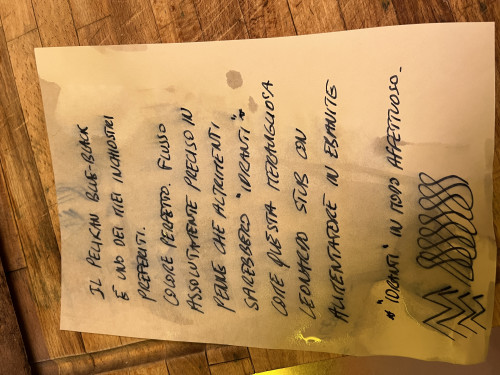 IL PELIKAN BLUE-BLACK
È UNO DEI MIEI INCHIOSTRI
PREFERITI.
COLORE PERFETTO. FLUSSO
ASSOLUTAMENTE PRECISO IN
PENNE CHE ALTRIMENTI,
SAREBBERO "IDRANTI"*
COME QUESTA MERAVIGLIOSA
LEONARDO STUB CON
ALIMENTATORE IN EBANITE
* "IDRANTI" IN MODO AFFETTUOSO.